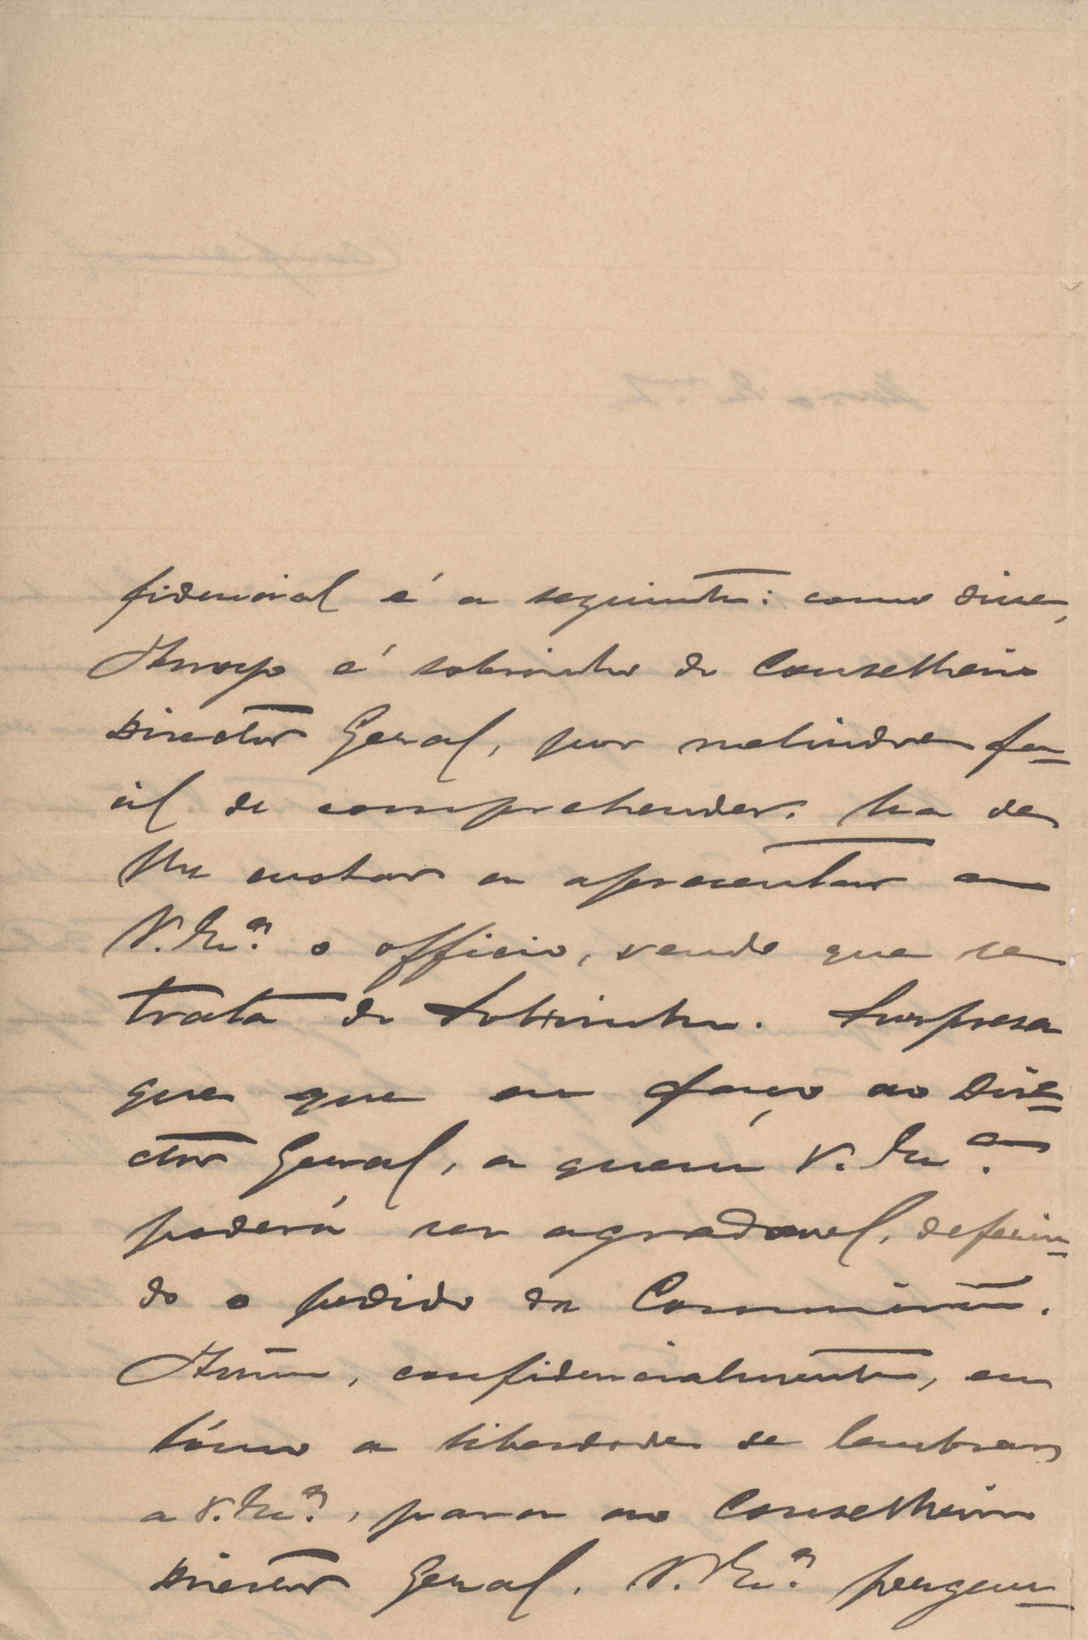 fidencial é a seguinte: como disse,
Arroyo é sobrinho do Conselheiro
Director Geral, por melindre fa-
cil de comprehender. Ha de
lhe custar a apresentar a
V. Ex.ª o officio, vendo que se
trata do Sobrinho. Surpresa
que que eu faço ao Dire-
ctor Geral, a quem V. Ex.ª
poderá ser agradavel, deferin-
do o pedido da Commissão.
Assim, confidencialmente, eu
tómo a liberdade de lembrar
a V. Ex.ª, para ao Conselheiro
Director Geral. V. Ex.ª pergun-